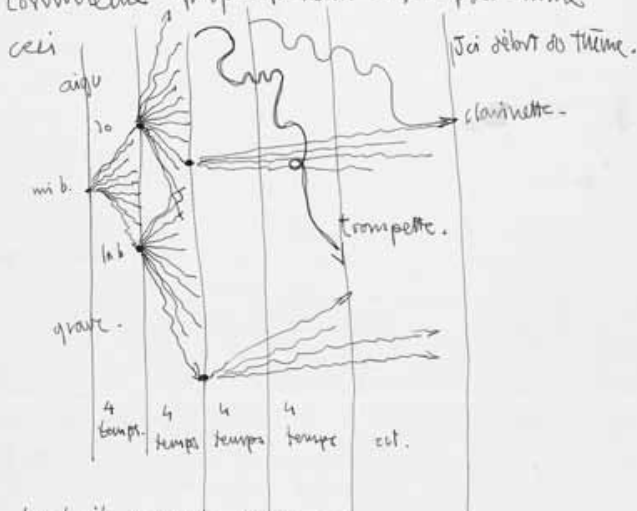 ceci
Ici début du thème.
aigu
do
clarinette.
mi b.
trompette.
la b
grave.
4 4 4 4
temps. temps temps temps ect.